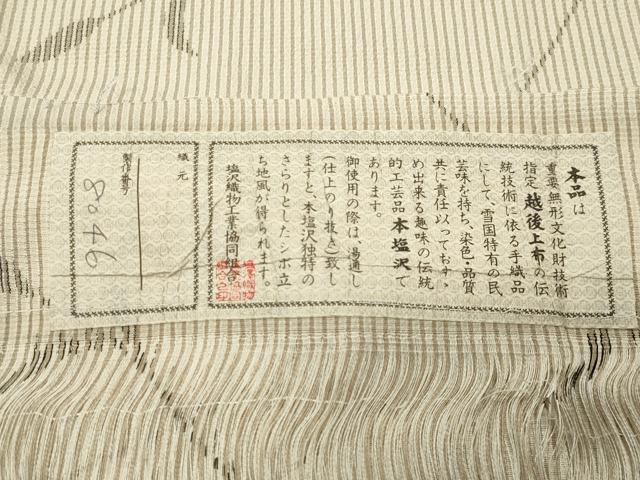 本品は
重要無形文化財技術
指定 越後上布の伝
統技術に依る手織品
にして、雪国特有の民
芸味を持ち、染色・品質
共に責任以っておすゝ
め出来る趣味の伝統
的工芸品 本塩沢で
あります。
御使用の際は、湯通し
(仕上のり抜き)致し
ますと、本塩沢独特の
さらりとしたシボ立
ち地風が得られます。
塩沢織物工業協同組合
織元
製作番号
8046